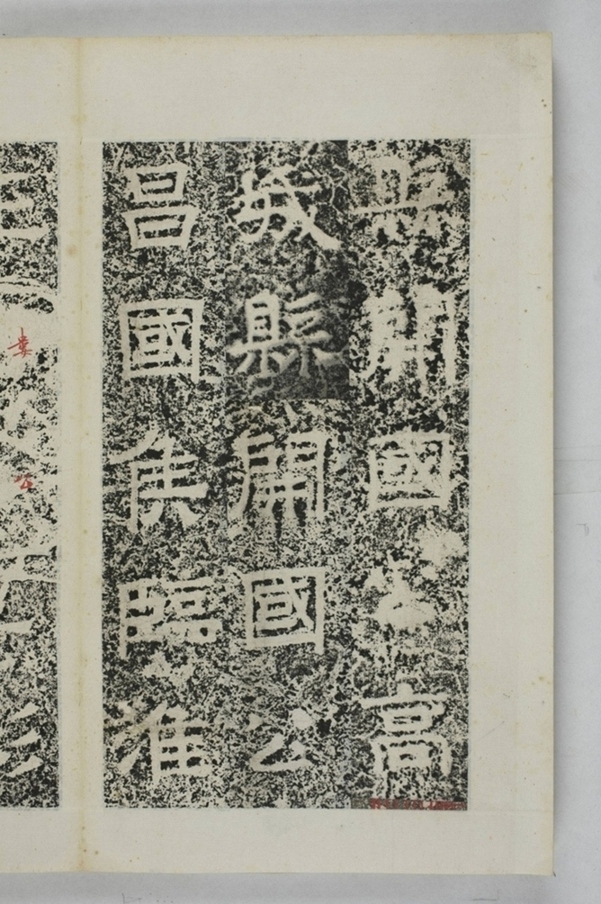 縣開國公高
城縣開國公
昌國侯臨淮
公